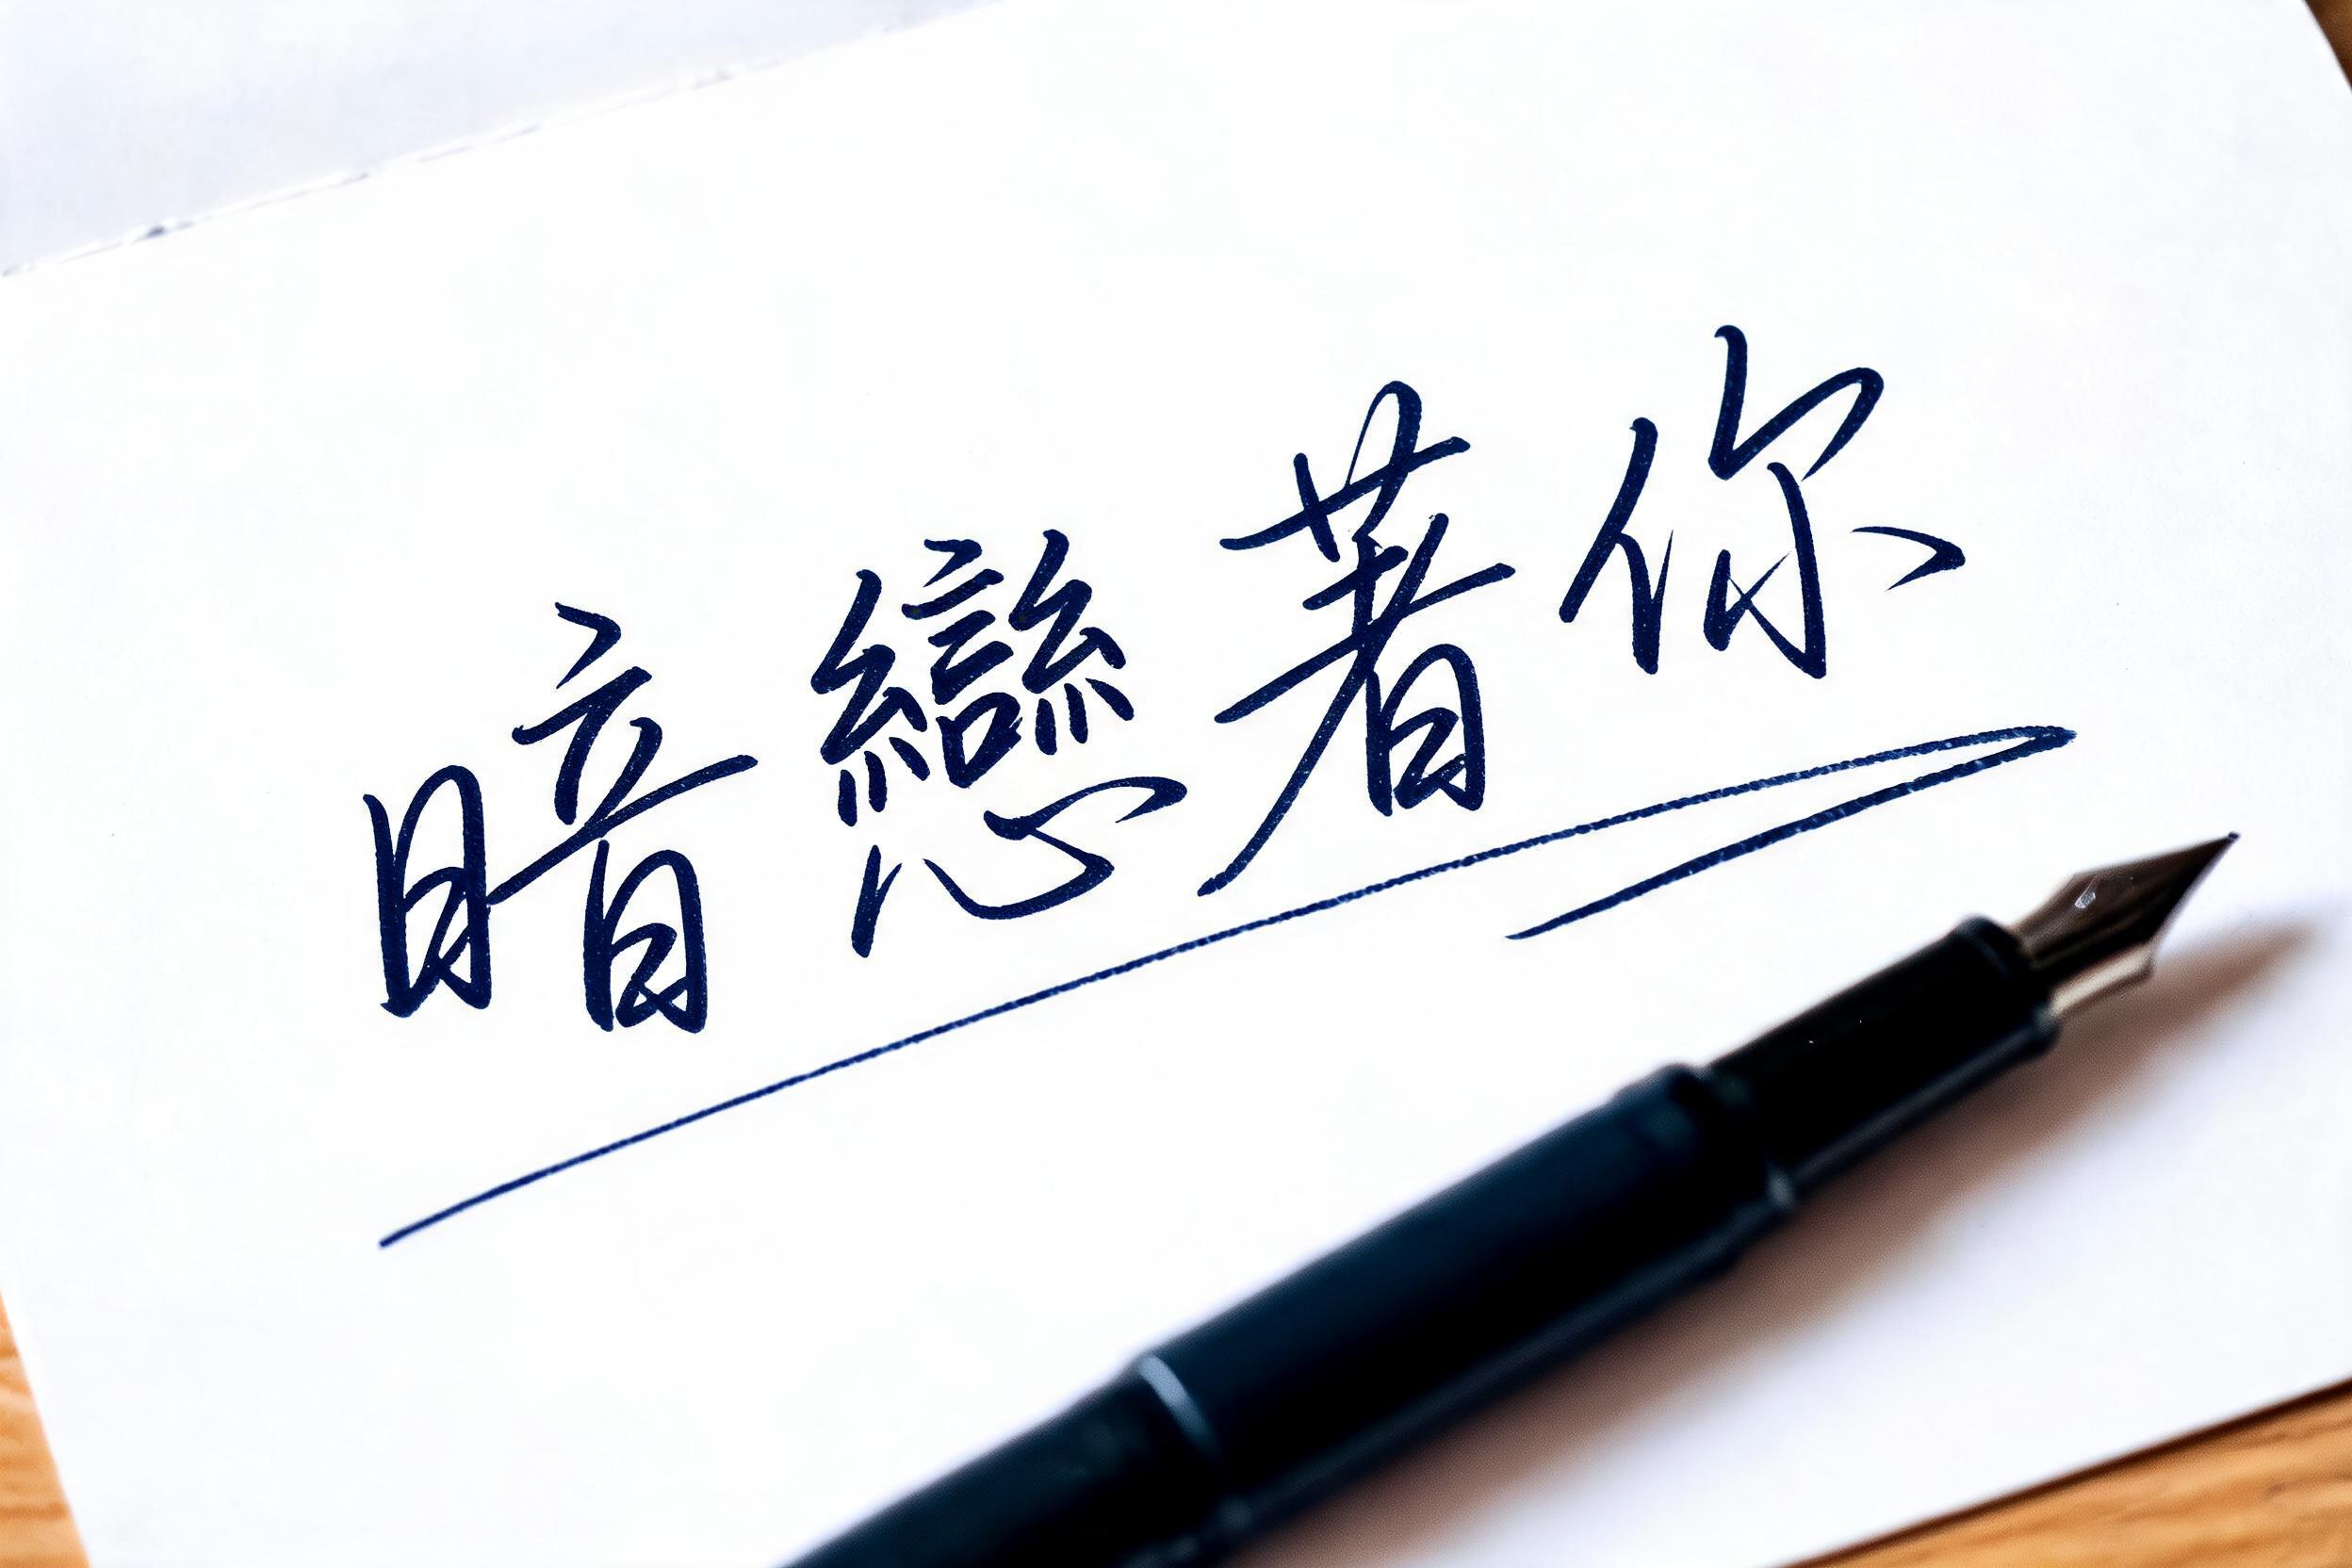 暗戀著你